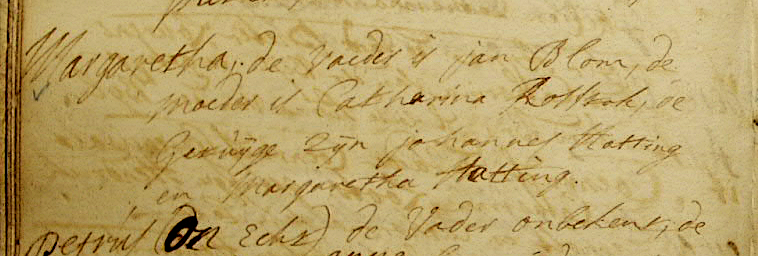 Margaretha, de Vader is jan Blom, de
moeder is Catharina de
Getuijge zijn johannes Hatting
en Margaretha Hatting.
Petrus (On Echt) de Vader onbekent, de